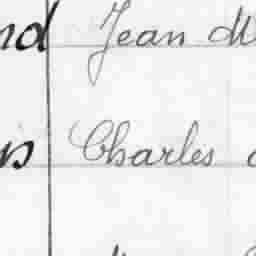 nd Jean M
s Charles